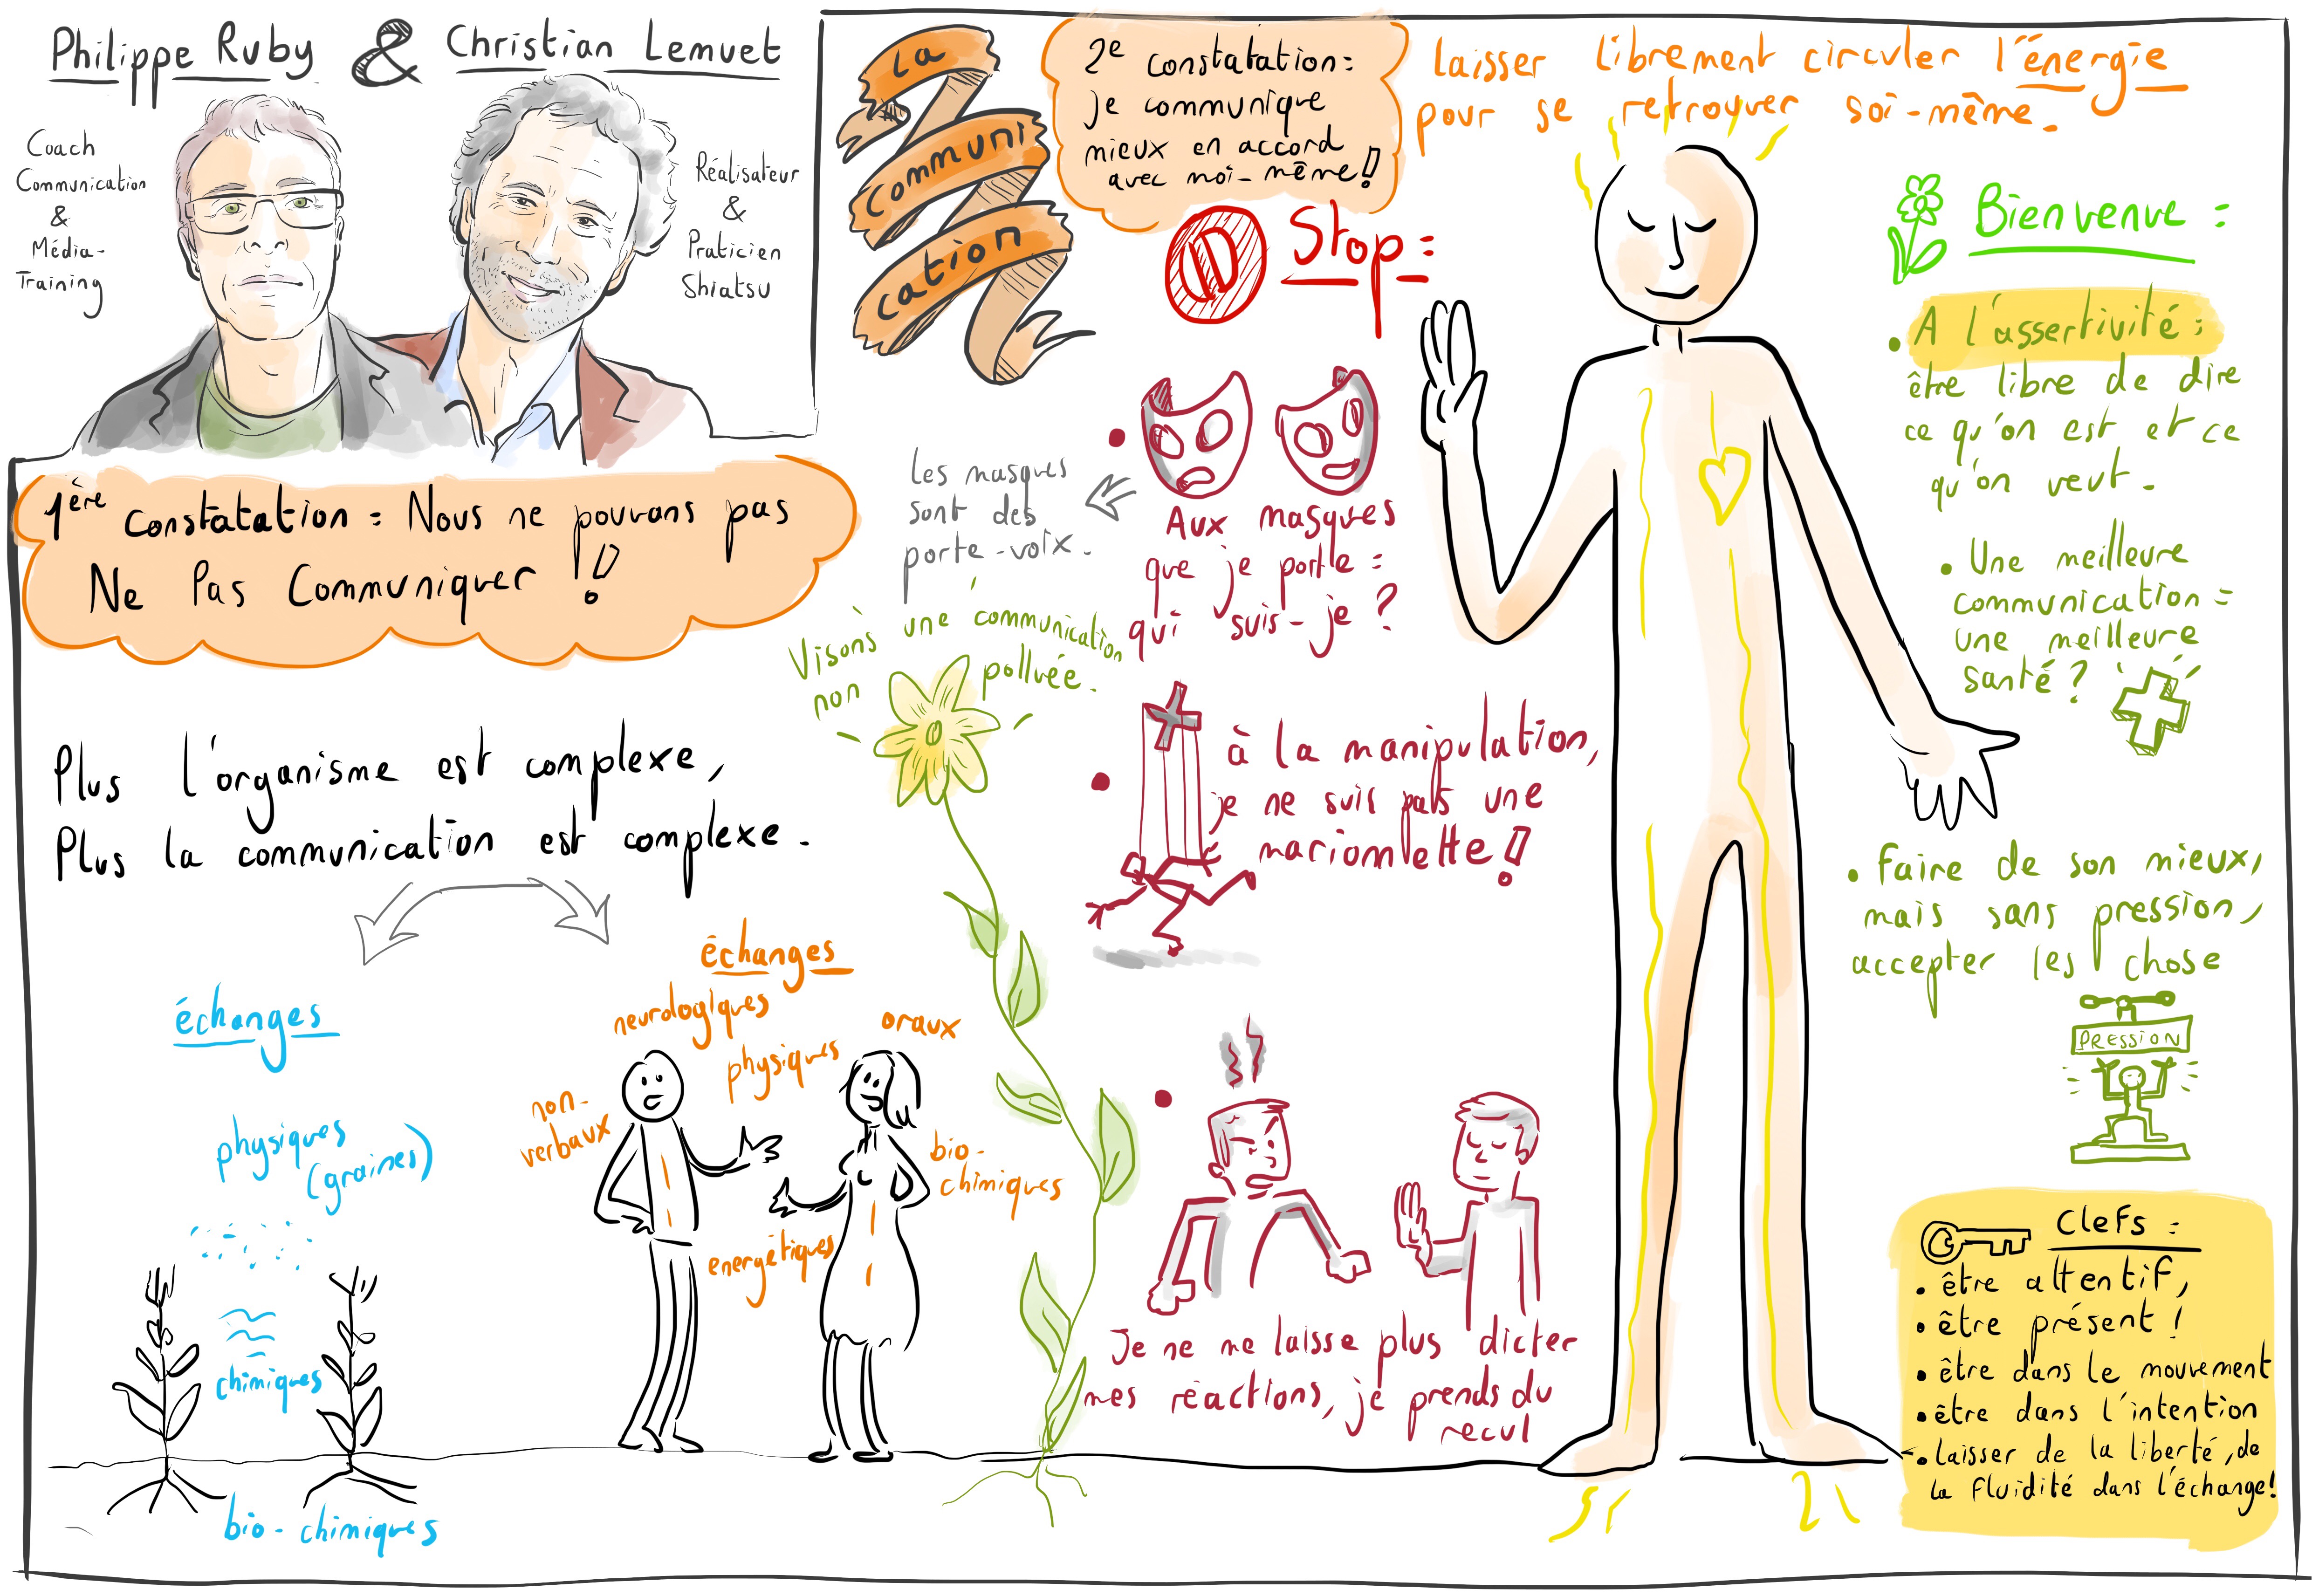 Philippe Ruby & Christian Lemuet
Coach
Communication
&
Média-
Training
Réalisateur
&
Praticien
Shiatsu
1ère constatation = Nous ne pouvons pas
Ne Pas Communiquer !!
Plus l'organisme est complexe,
Plus la communication est complexe.
échanges
physiques
(graines)
chimiques
bio-chimiques
échanges
neurologiques
physiques
oraux
non-
verbaux
bio-
chimiques
energétiques
La
communi
cation
2e constatation =
je communique
mieux en accord
avec moi-même !
Stop =
Aux masques
que je porte =
qui suis-je ?
Les masques
sont des
porte-voix.
Visons une communication
non polluée.
à la manipulation,
je ne suis pas une
marionnette !
Je ne me laisse plus dicter
mes réactions, je prends du
recul
laisser librement circuler l'énergie
pour se retrouver soi-même.
Bienvenue =
• A l'assertivité =
être libre de dire
ce qu'on est et ce
qu'on veut.
• Une meilleure
communication =
une meilleure
santé ?
• Faire de son mieux,
mais sans pression,
accepter les chose
PRESSION
Clefs =
• être attentif,
• être présent !
• être dans le mouvement
• être dans l'intention
• laisser de la liberté, de
la fluidité dans l'échange !